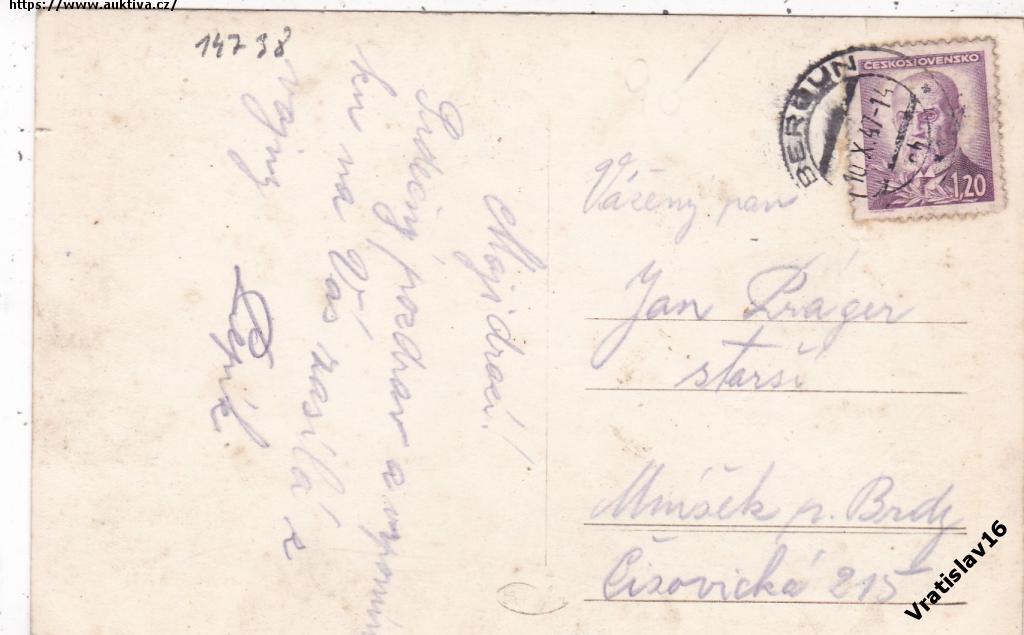 https://www.auktiva.cz/
14738
Moji drazí!
Srdečný pozdrav a vzpomín
ku na Vás zasílá z
vojny
Pepík
BEROUN
10.X.47-14
ČESKOSLOVENSKO
1,20
Vážený pan
Jan Práger
starší
Mníšek p. Brdy
Čisovická 215
Vratislav16